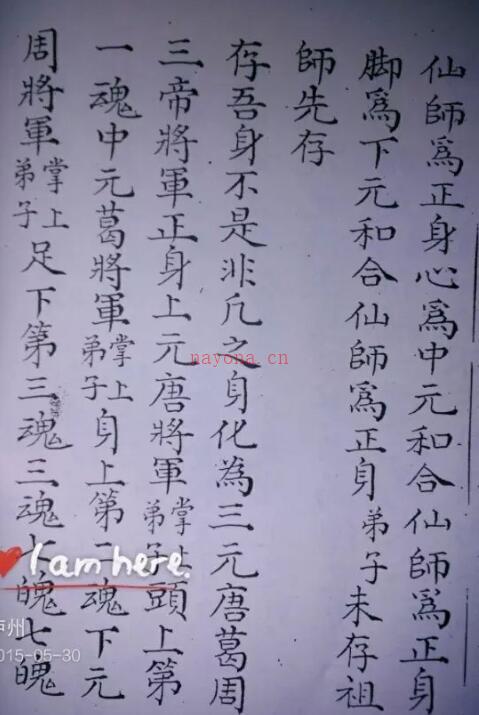 仙師爲正身心爲中元和合仙師爲正身
脚爲下元和合仙師爲正身弟子未存祖
師先存
存吾身不是非凢之身化為三元唐葛周
三帝將軍正身上元唐將軍掌上弟子頭上第
一魂中元葛將軍掌上弟子身上第二魂下元
周將軍掌上弟子足下第三魂三魂七魄七魄
nayona.cn
I am here.
州
015-05-30